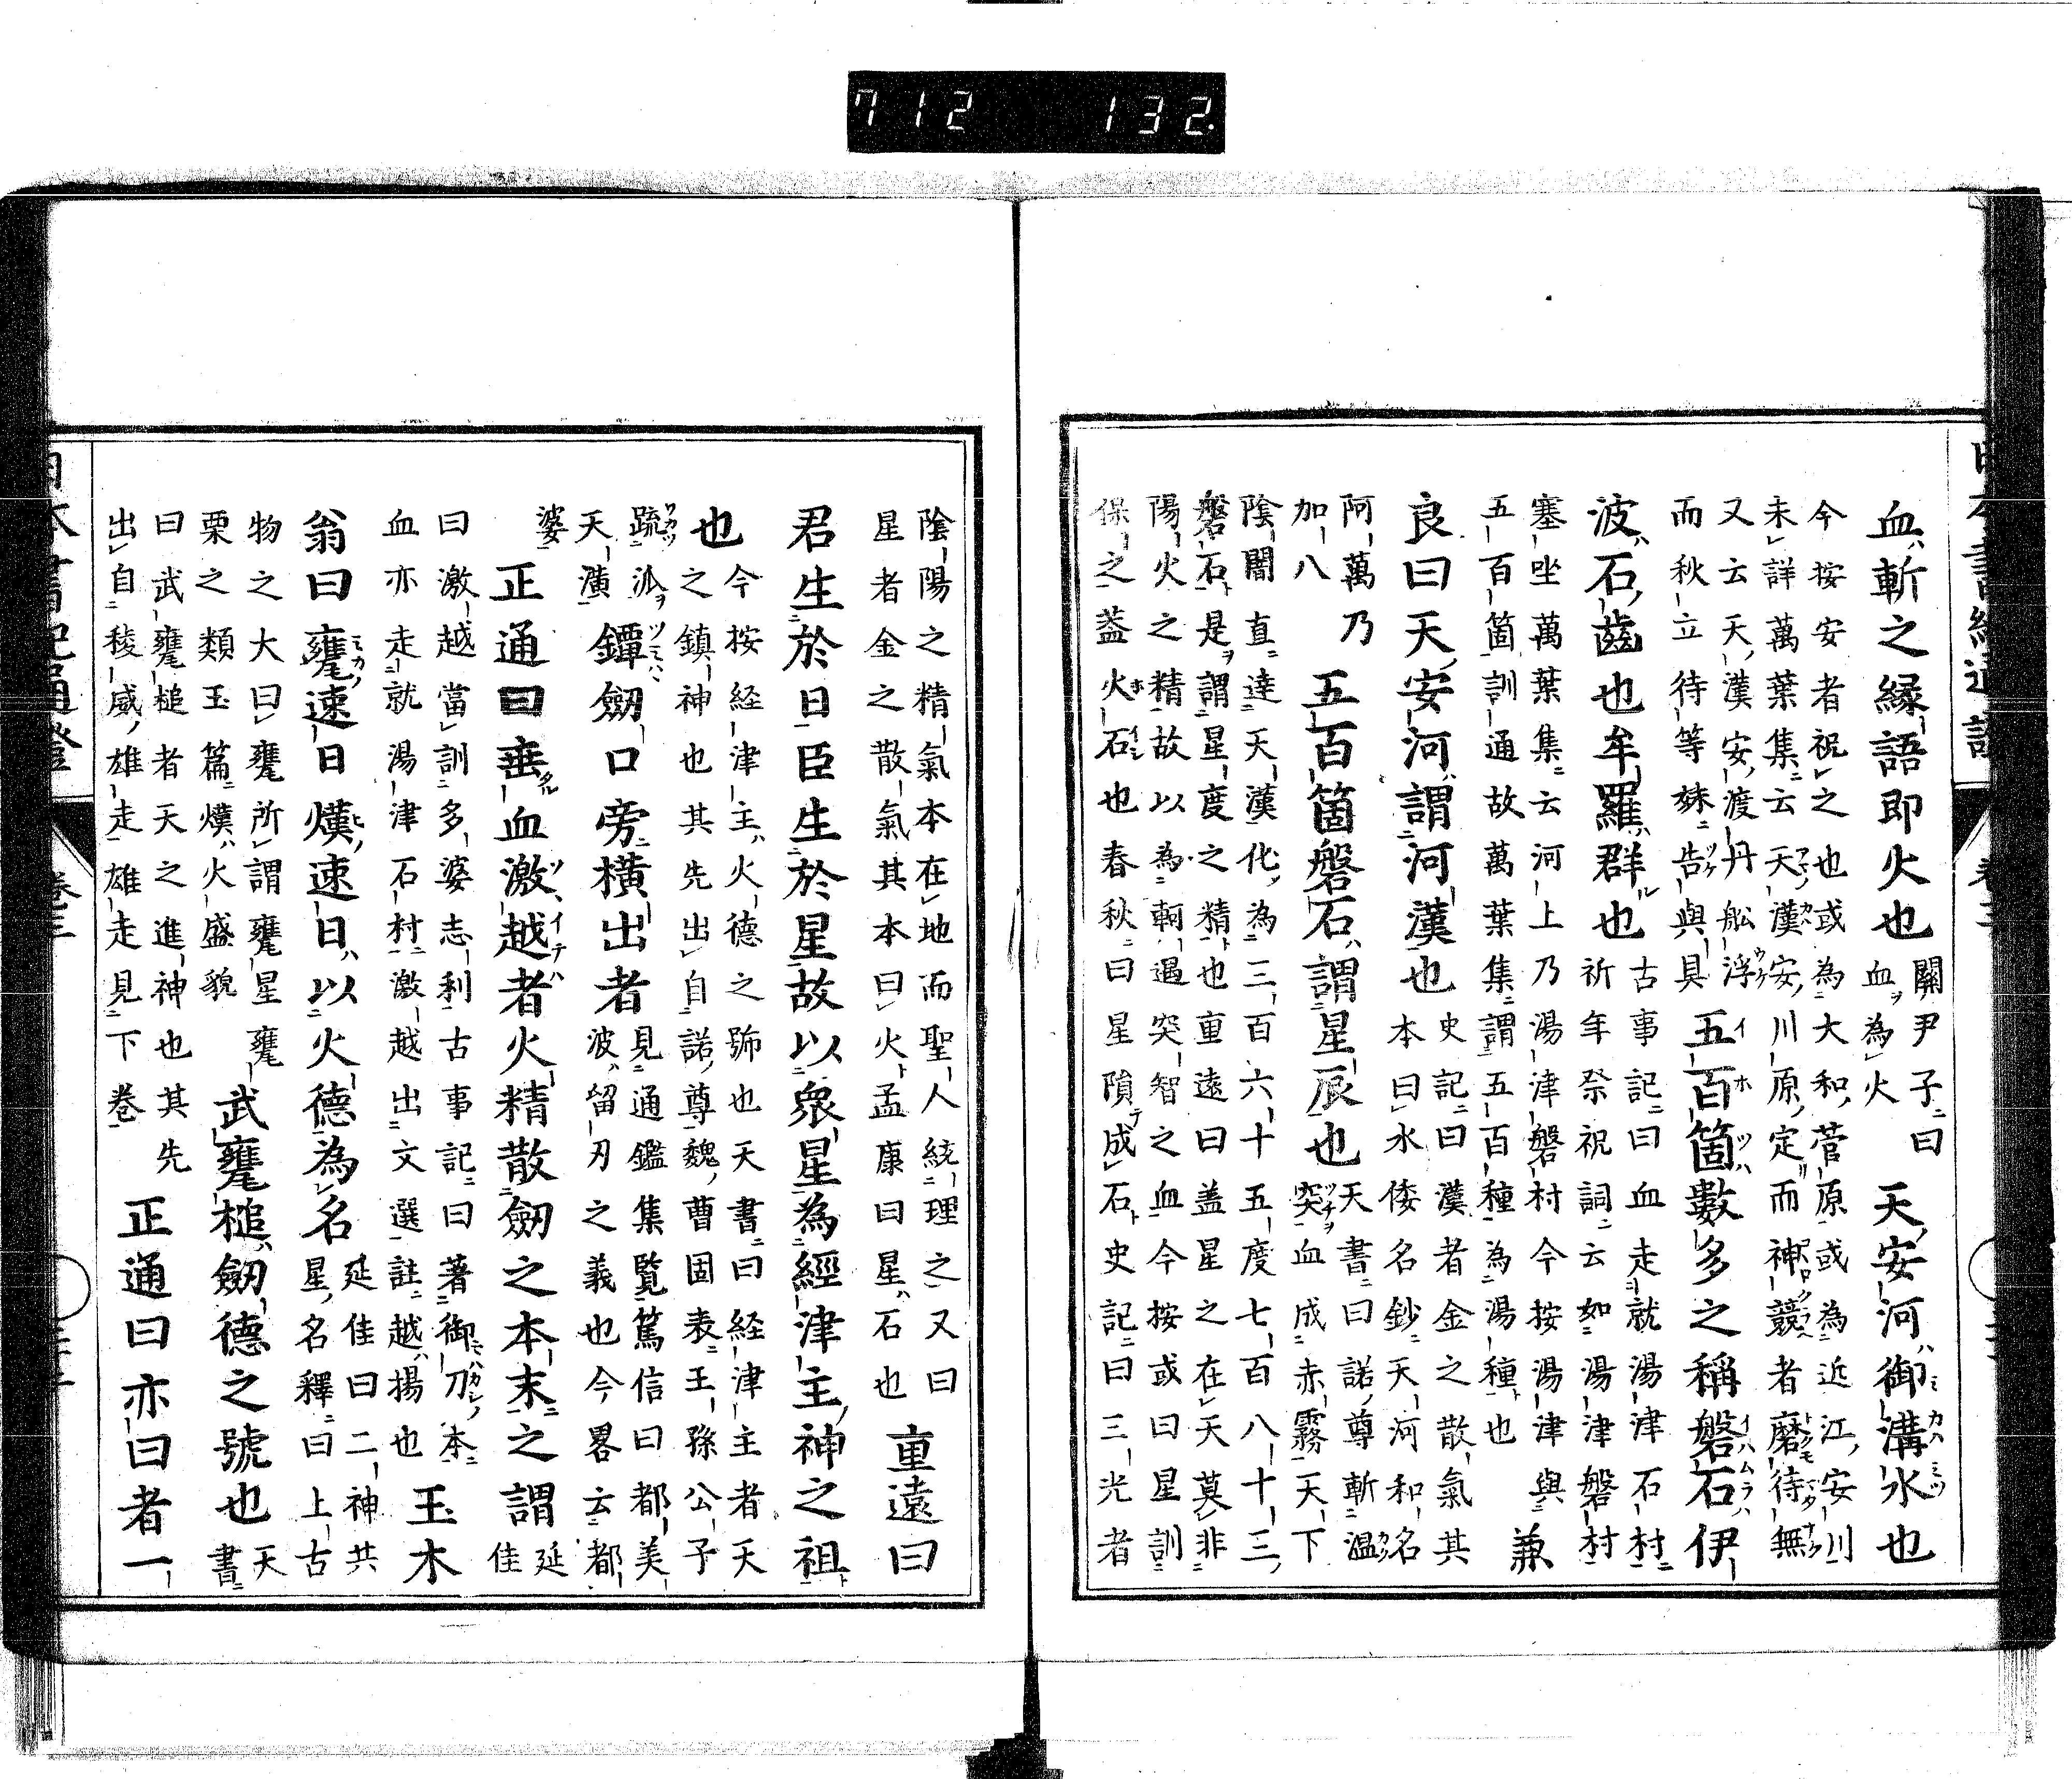 712 132.
血斬之縁語即火也
關尹子曰
血為火
天安河御溝水也
今按安者祝之也或為大和菅原或為近江安川
未詳萬葉集云天漢安川原定而神競者磨待無
又云天漢安渡丹舩浮
而秋立待等妹告與具
五百箇數多之稱磐石伊
波石齒也牟羅群也
古事記曰血走就湯津石村
祈年祭祝詞云如湯津磐村
塞坐萬葉集云河上乃湯津磐村今按湯津與
五百箇訓通故萬葉集謂五百種為湯種也
兼
良曰天安河謂河漢也
史記曰漢者金之散氣其
本曰水倭名鈔天河和名
阿萬乃
加八
五百箇磐石謂星辰也
天書曰諾尊斬溫
突血成赤霧天下
陰闇直達天漢化為三百六十五度七百八十三
磐石是謂星度之精也重遠曰盖星之在天莫非
陽火之精故以為軻遇突智之血今按或曰星訓
保之盖火石也春秋曰星隕成石史記曰三光者
陰陽之精氣本在地而聖人統理之又曰
星者金之散氣其本曰火孟康曰星石也
重遠曰
君生於日臣生於星故以衆星為經津主神之祖
也
今按経津主火德之號也天書曰経津主者天
之鎮神也其先出自諾尊魏曹固表王孫公子
疏派
天潢
鐔劒口旁橫出者
見通鑑集覧篤信曰都美
波留刃之義也今畧云都
婆
正通曰垂血激越者火精散劒之本末之謂
延
佳
曰激越當訓多婆志利古事記曰著御刀本
血亦走就湯津石村激越出文選註越揚也
玉木
翁曰甕速日熯速日以火德為名
延佳曰二神共
星名釋曰上古
物之大曰甕所謂甕星甕
栗之類玉篇熯火盛貌
武甕槌劒德之號也
天
書
曰武甕槌者天之進神也其先
出自稜威雄走雄走見下卷
正通曰亦曰者一